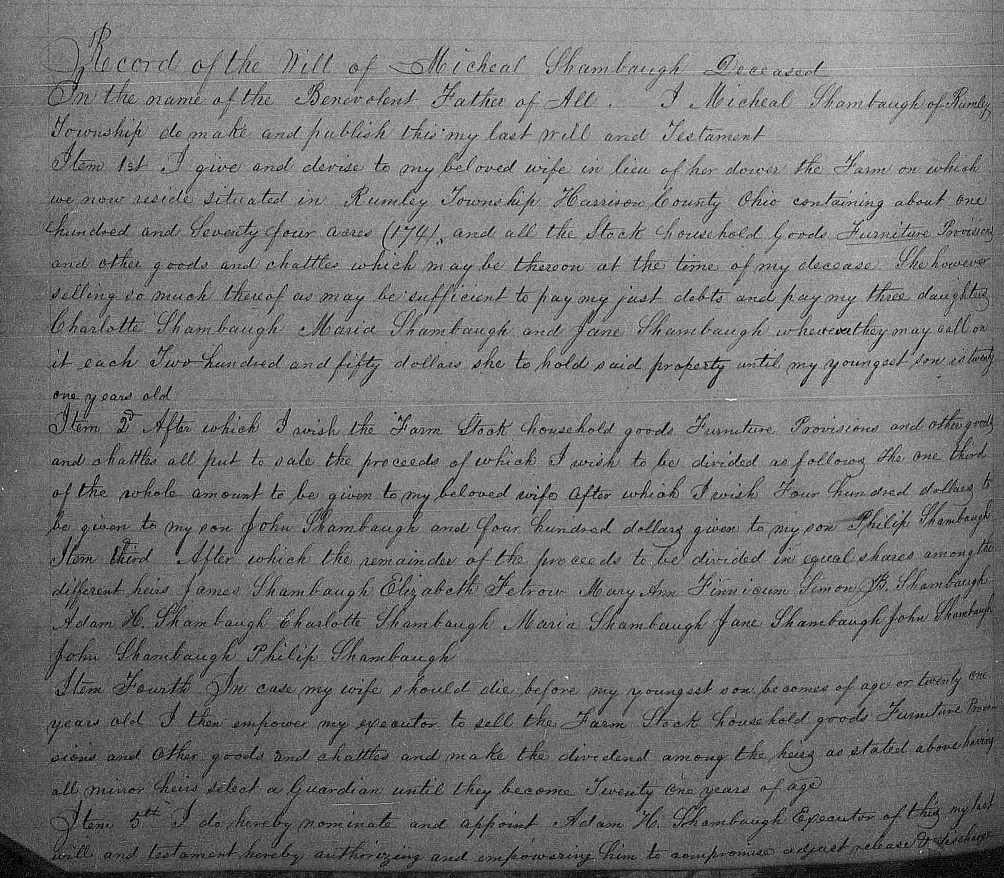 Record of the Will of Micheal Shambaugh Deceased
In the name of the Benevolent Father of All. I Micheal Shambaugh of Rumley
Township do make and publish this my last will and Testament
Item 1st I give and devise to my beloved wife in lieu of her dower the Farm on which
we now reside situated in Rumley Township Harrison County Ohio containing about one
hundred and Seventy four acres (174), and all the Stock household Goods Furniture Provisions
and other goods and chattles which may be thereon at the time of my decease She however
selling so much thereof as may be sufficient to pay my just debts and pay my three daughters
Charlotte Shambaugh Maria Shambaugh and Jane Shambaugh whenever they may call on
it each Two hundred and fifty dollars she to hold said property until my youngest son is twenty
one years old
Item 2d After which I wish the Farm Stock household goods Furniture Provisions and other goods
and chattles all put to sale the proceeds of which I wish to be divided as follows the one third
of the whole amount to be given to my beloved wife After which I wish Four hundred dollars to
be given to my son John Shambaugh and four hundred dollars given to my son Philip Shambaugh
Item third After which the remainder of the proceeds to be divided in equal shares among the
different heirs James Shambaugh Elizabeth Fetrow Mary Ann Finnicum Simon B. Shambaugh
Adam H. Shambaugh Charlotte Shambaugh Maria Shambaugh Jane Shambaugh John Shambaugh
John Shambaugh Philip Shambaugh
Item Fourth In case my wife should die before my youngest son becomes of age or twenty one
years old I then empower my executor to sell the Farm Stock household goods Furniture Provi-
sions and other goods and chattles and make the dividend among the heirs as stated above having
all minor heirs select a Guardian until they become Twenty one years of age
Item 5th I do hereby nominate and appoint Adam H. Shambaugh Executor of this my last
will and testament hereby authorizing and empowering him to compromise adjust release &